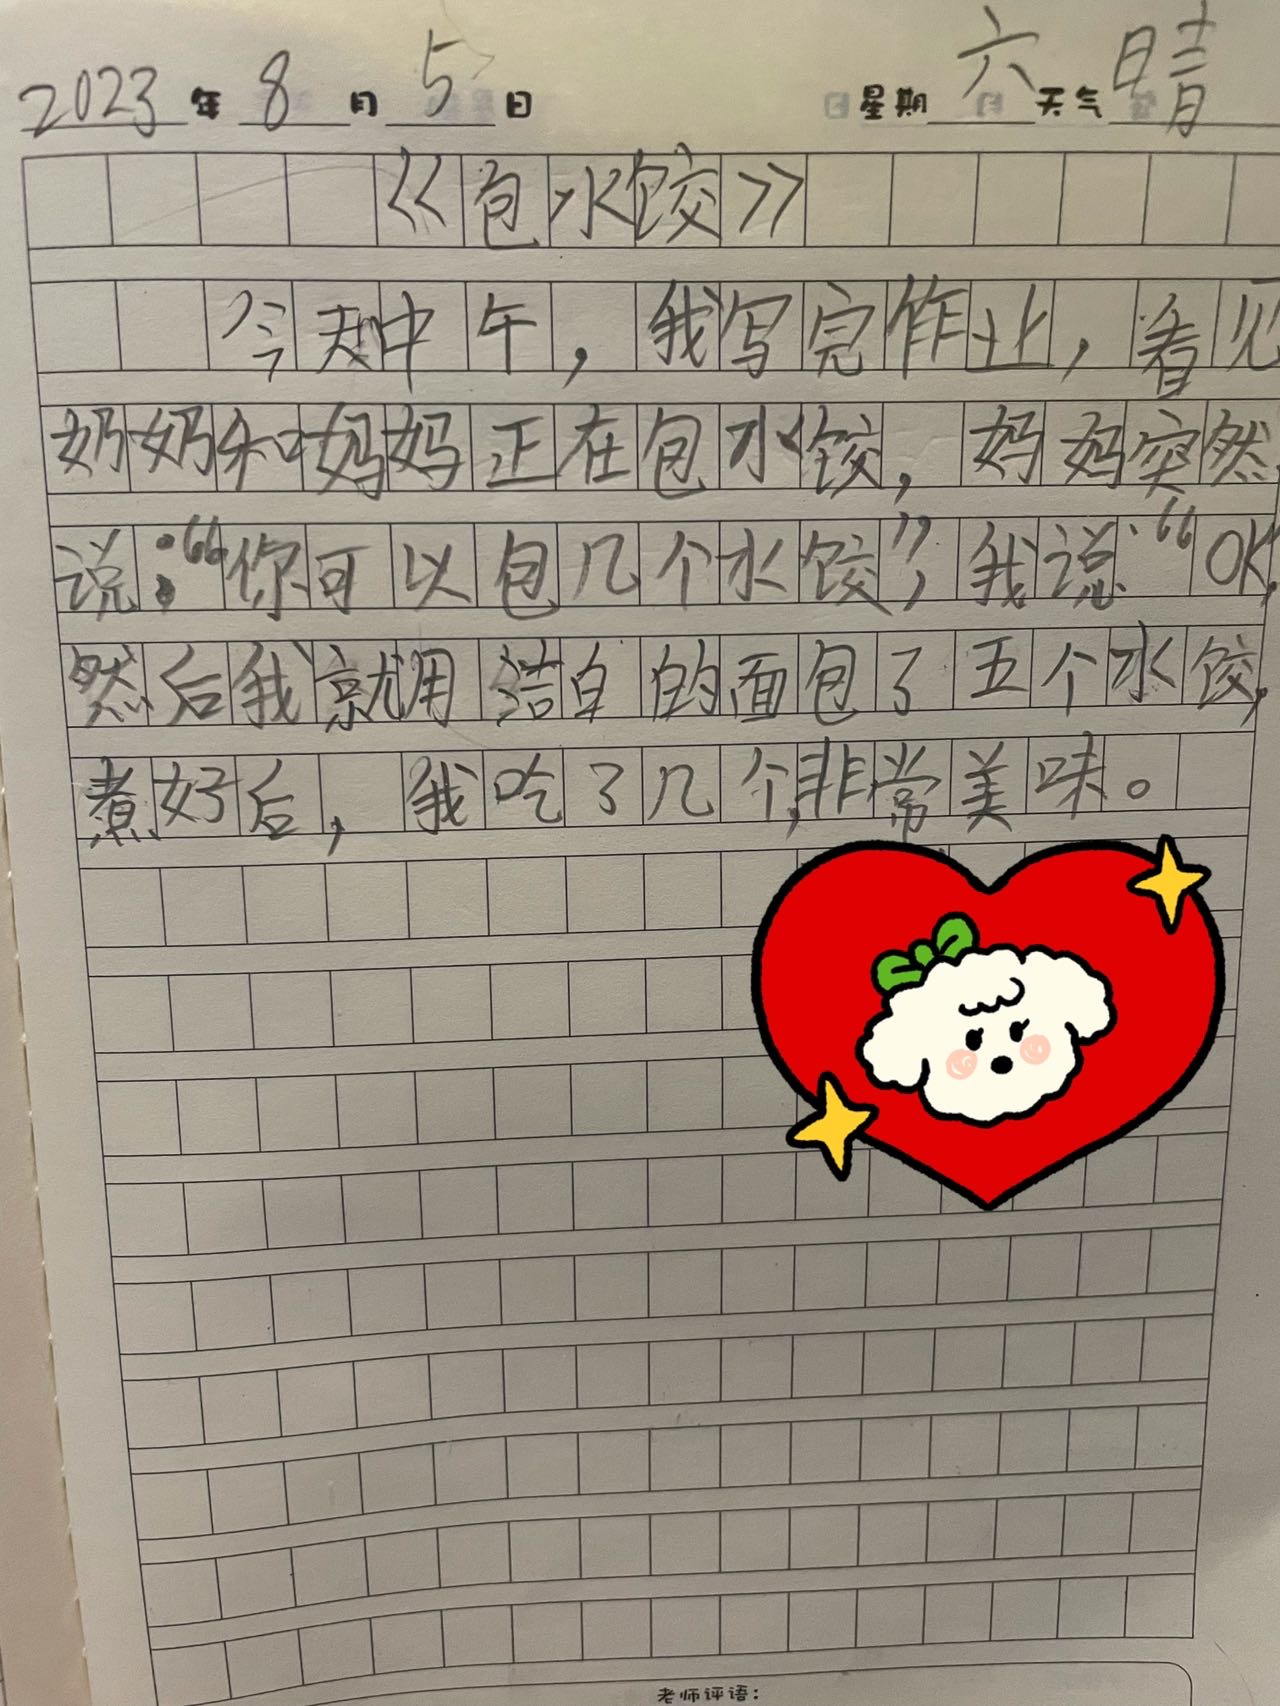 2023年8月5日 星期六天气晴
《包水饺》
今天中午，我写完作业，看见
奶奶和妈妈正在包水饺，妈妈突然
说：“你可以包几个水饺”，我说：“OK，
然后我就用洁白的面包了五个水饺，
煮好后，我吃了几个，非常美味。
老师评语：